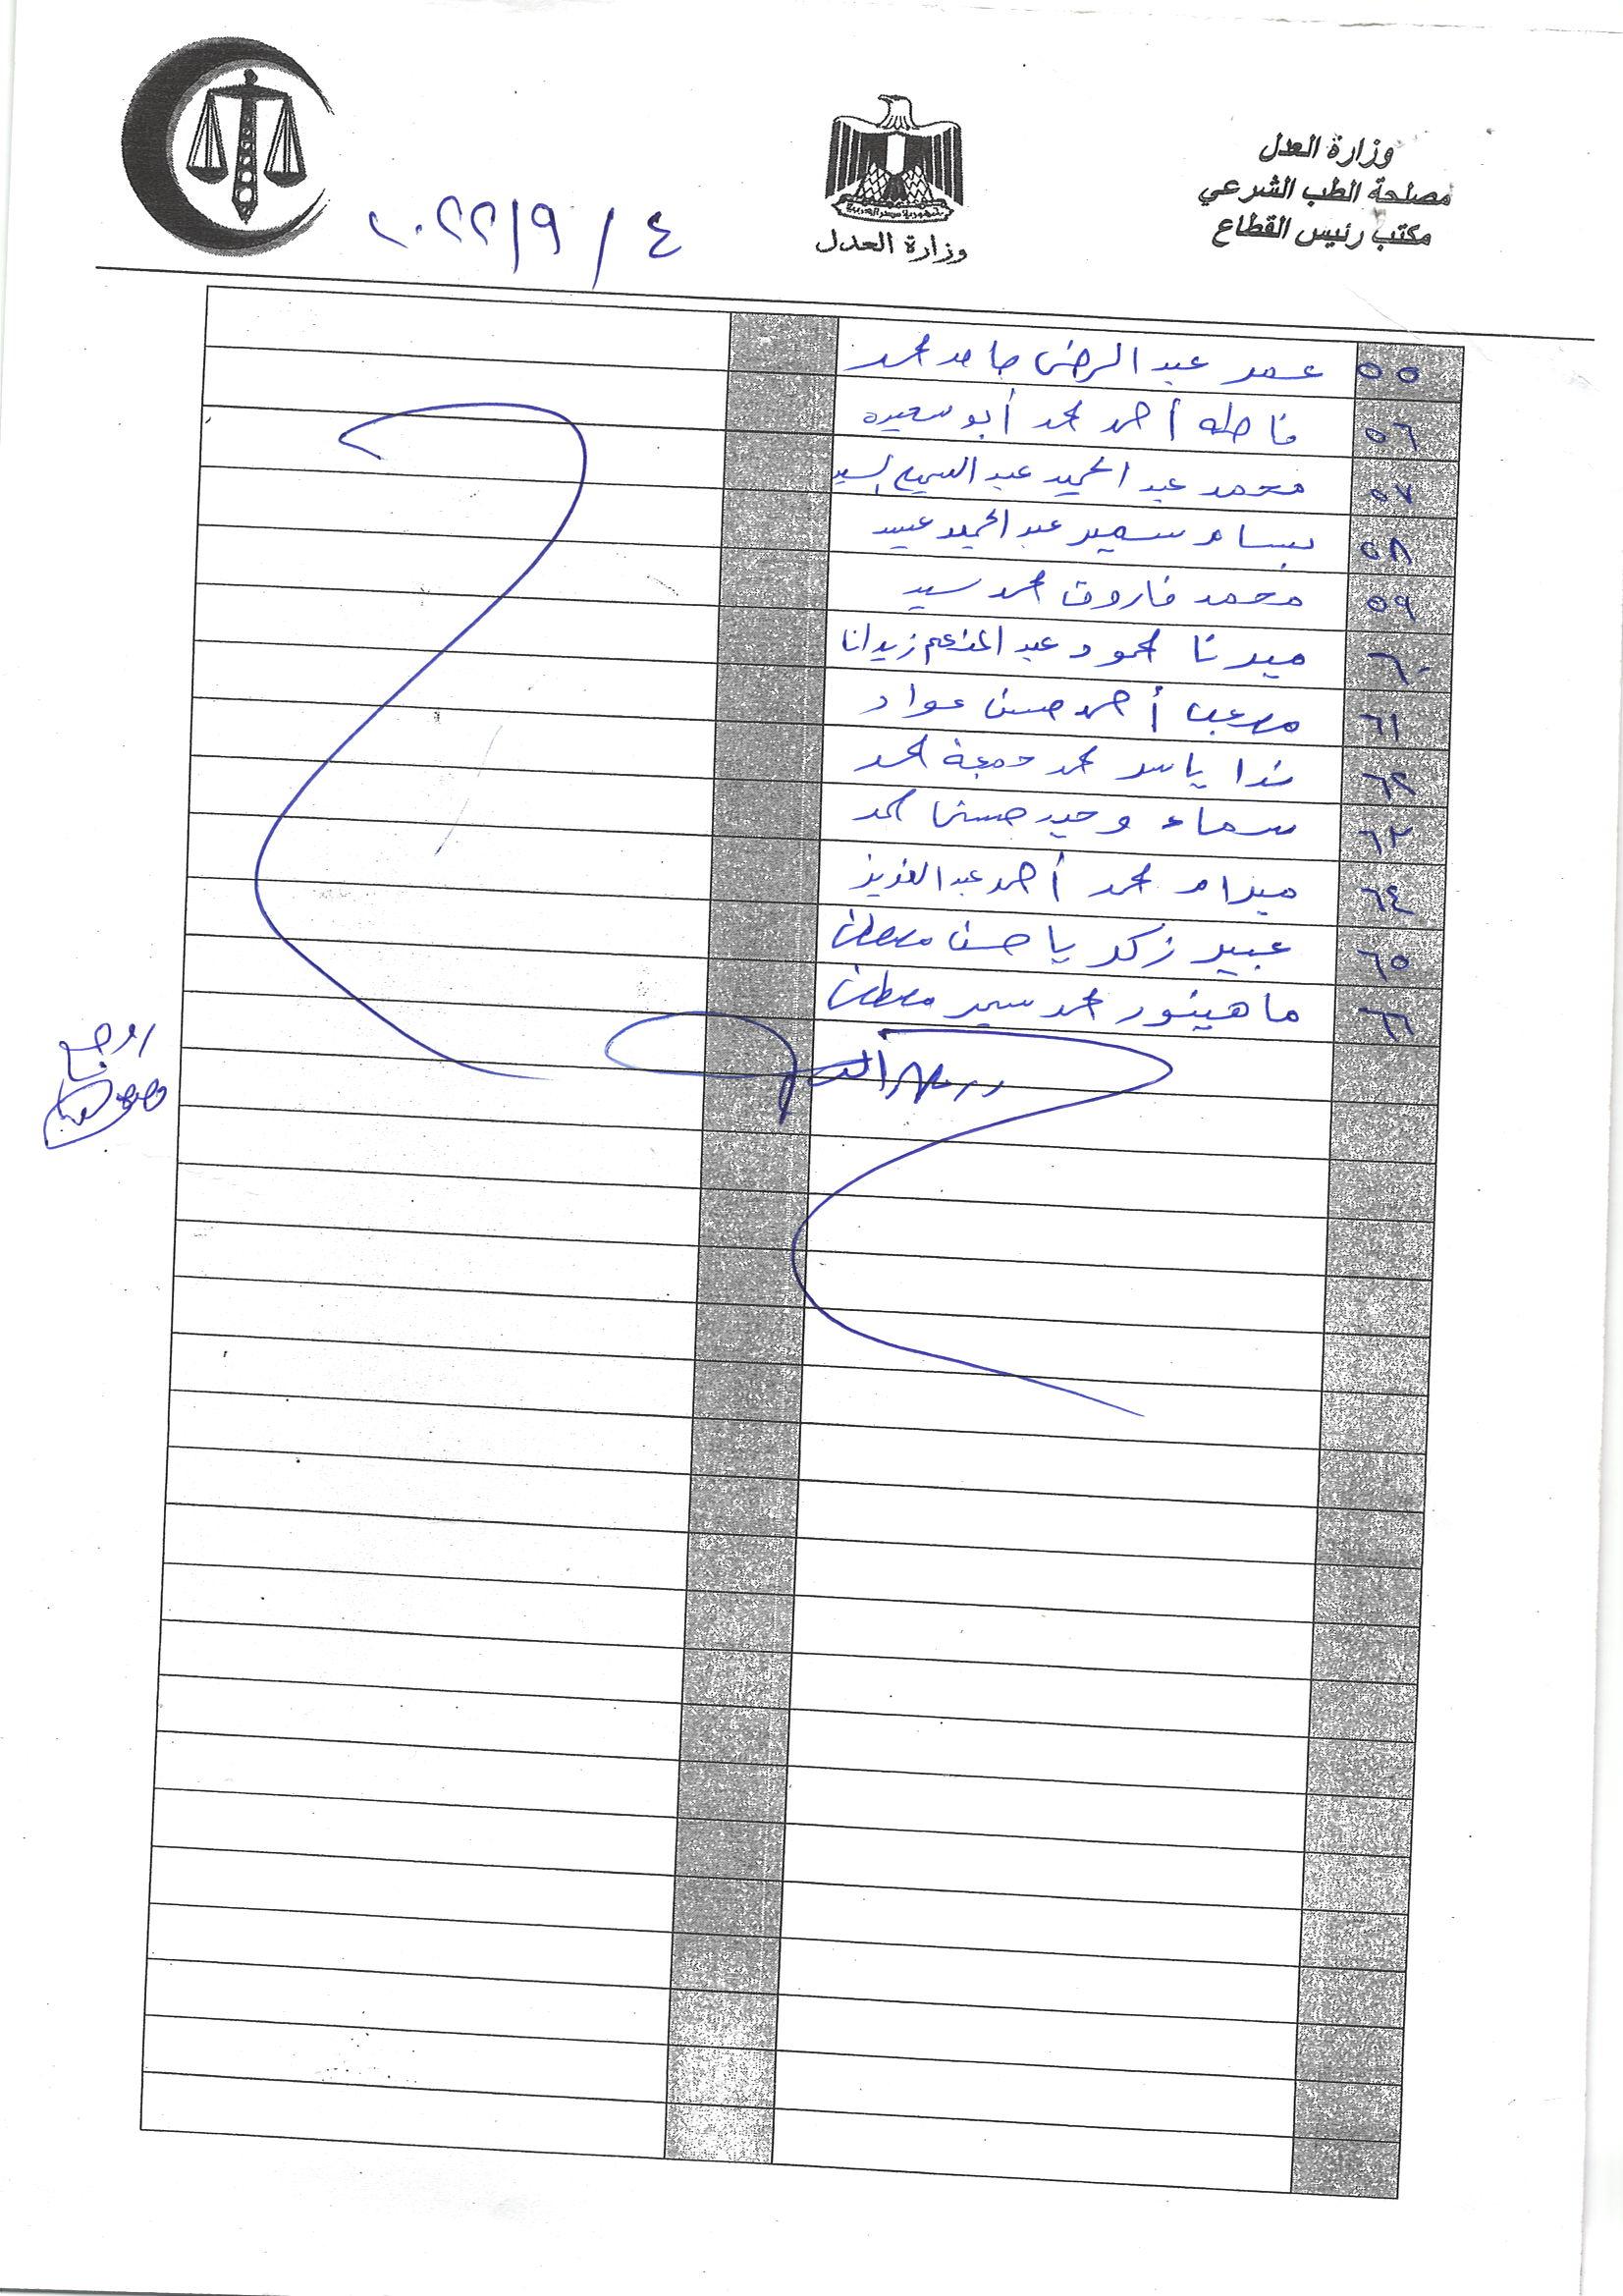 وزارة العدل
مصلحة الطب الشرعي
مكتب رئيس القطاع
جمهورية مصر العربية
وزارة العدل
٤ / ٩ / ٢٠٢٢
٥٥ عمر عبد الرضى حامد محمد
٥٦ فاطمه أحمد محمد أبو سعيده
٥٧ محمد عبد الحميد عبد السميع السيد
٥٨ بسام سمير عبد الحميد عبيد
٥٩ محمد فاروق محمد سيد
٦٠ ميرنا محمود عبد المنعم زيدان
٦١ مصعب أحمد حسن عواد
٦٢ ندا ياسر محمد جمعة محمد
٦٣ سماء وحيد حسنى محمد
٦٤ ميرام محمد أحمد عبد العزيز
٦٥ عبير زكريا حسن مصطفى
٦٦ ماهينور محمد سمير مصطفى